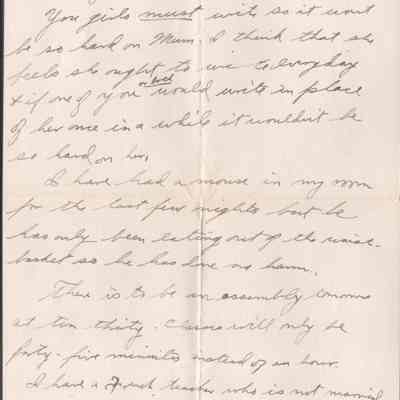 You girls must write so it won't
be so hard on Mum. I think that she
feels she ought to write to everyday
& if one of you or both would write in place
of her once in a while it wouldn't be
so hard on her.
I have had a mouse in my room
for the last few nights but he
has only been eating out of the waist-
basket so he has done no harm.
There is to be an assembly tomorrow
at ten thirty. Classes will only be
forty-five minutes instead of an hour.
I have a French teacher who is not married